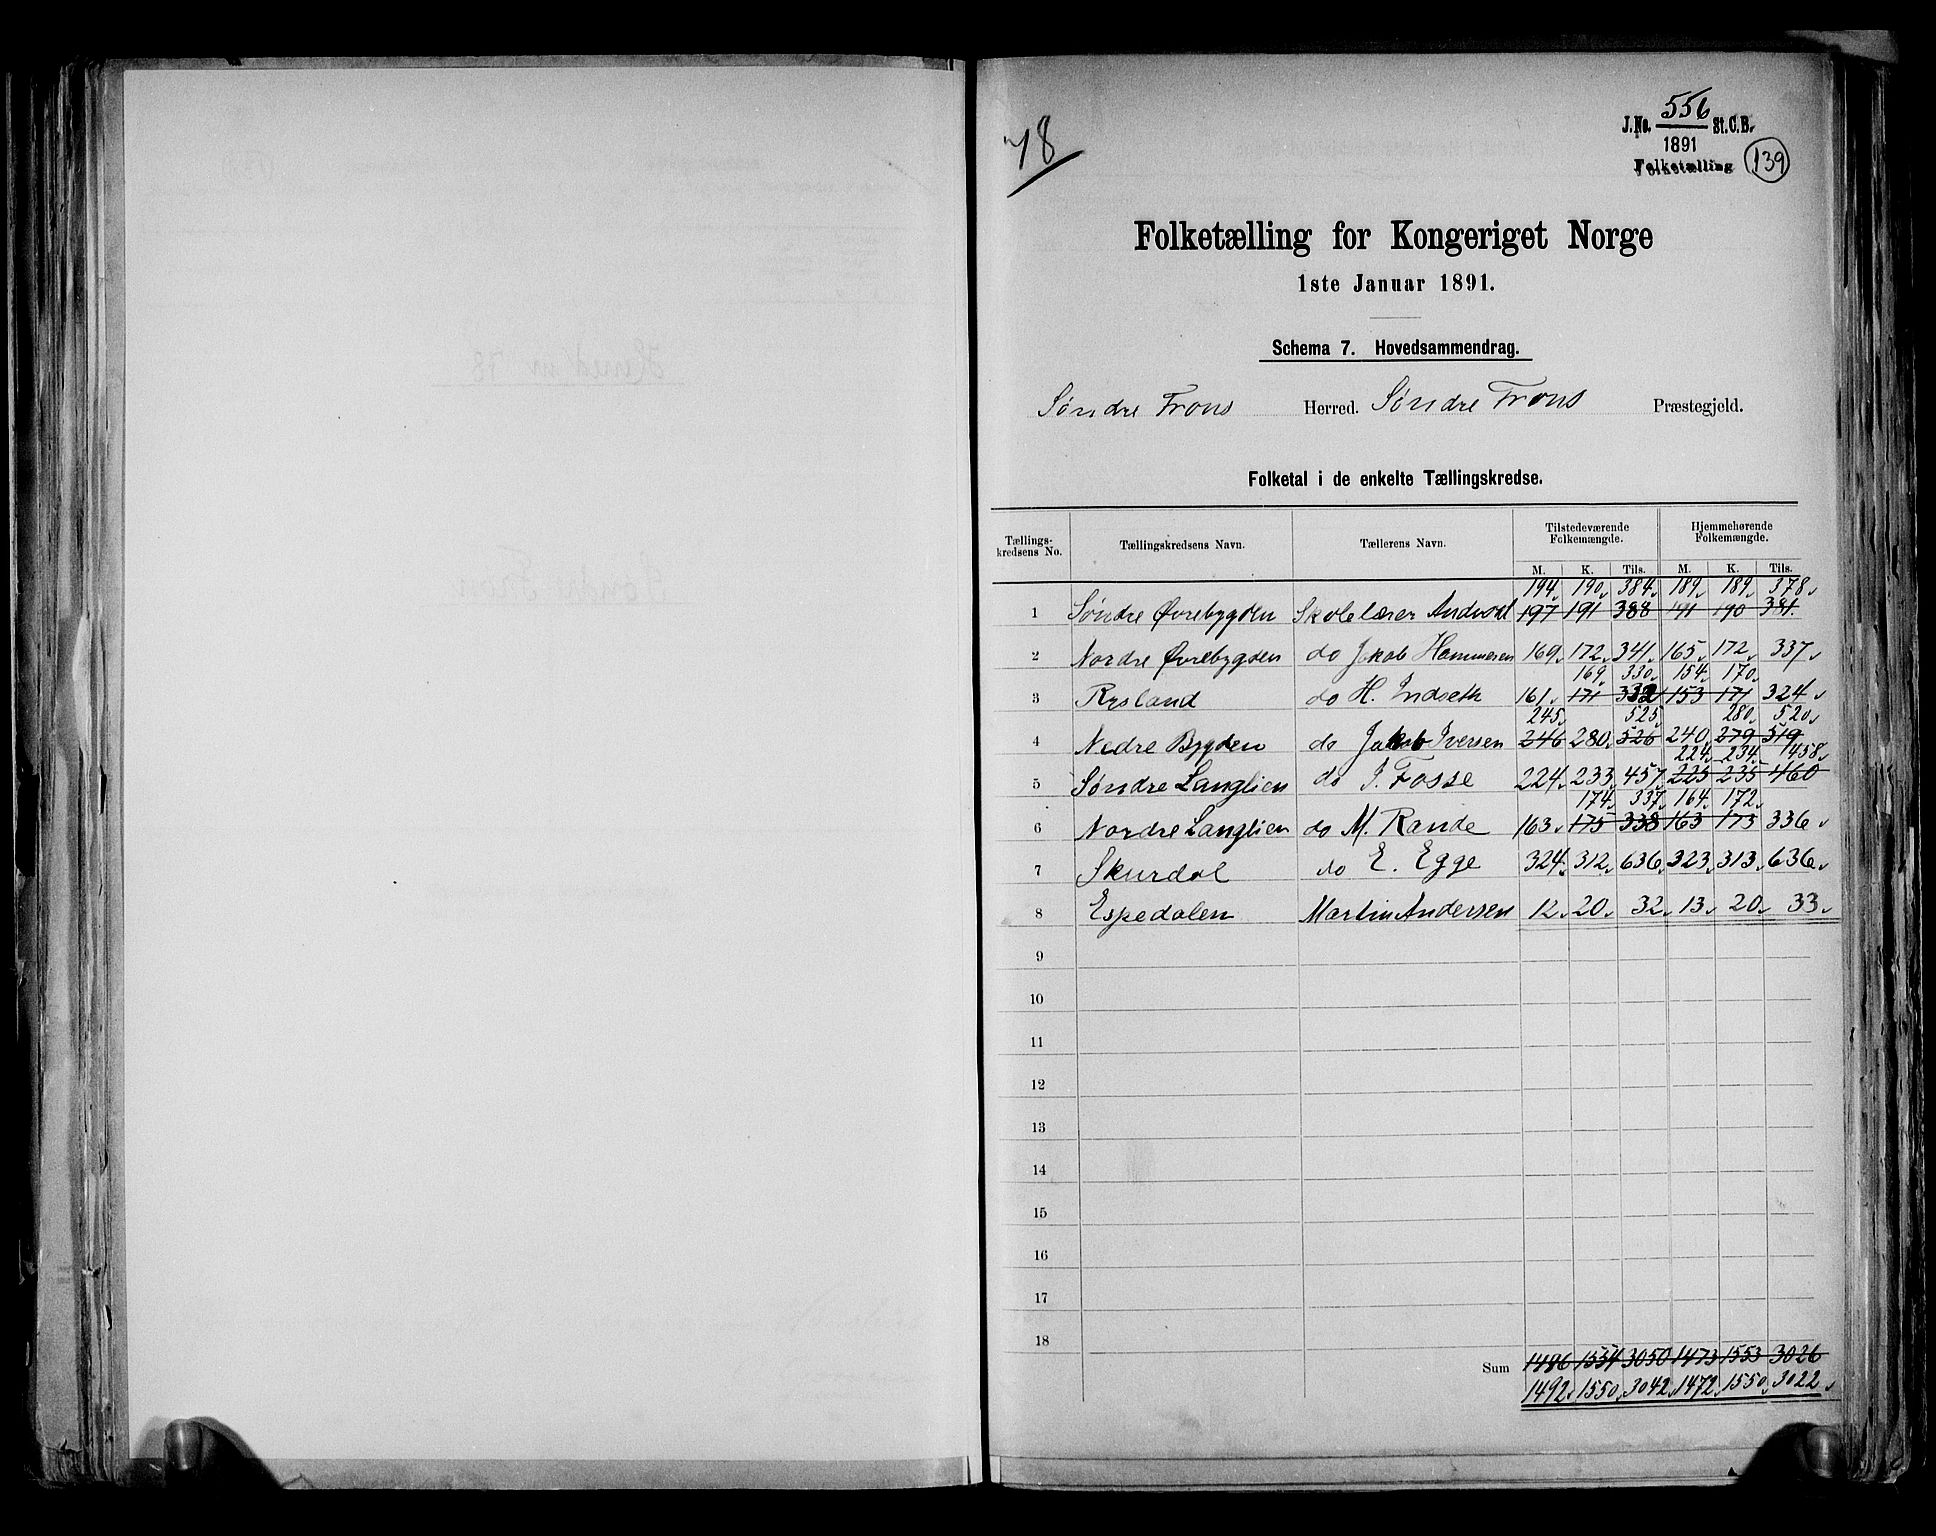 78
J.No. 556 St.C.B.
1891
Folketælling 139
Folketælling for Kongeriget Norge
1ste Januar 1891.
Schema 7. Hovedsammendrag.
Søndre Frons Herred. Søndre Frons Præstegjeld.
Folketal i de enkelte Tællingskredse.
Tællings-kredsens No. Tællingskredsens Navn. Tællerens Navn. Tilstedeværende Folkemængde. Hjemmehørende Folkemængde.
M. K. Tils. M. K. Tils.
194 190 384 189 189 378
1 Søndre Øvrebygden Skolelærer Andvord 197 191 388 191 190 381
2 Nordre Øvrebygden do Jakob Hammeren 169 172 341 165 172 337
169 330 154 170
3 Rysland do H. Indseth 161 171 332 153 171 324
245 525 280 520
4 Nedre Bygden do Jakob Iversen 246 280 526 240 279 519
224 234 458
5 Søndre Langlien do J. Fosse 224 233 457 225 235 460
174 337 164 172
6 Nordre Langlien do M. Rande 163 175 338 163 173 336
7 Skurdal do E. Egge 324 312 636 323 313 636
8 Espedalen Martin Andersen 12 20 32 13 20 33
9
10
11
12
13
14
15
16
17
18
Sum 1486 1554 3050 1473 1553 3026
1492 1550 3042 1472 1550 3022